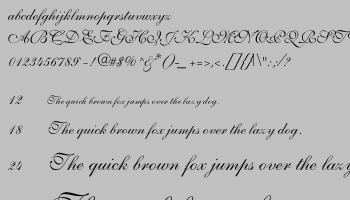 abcdefghijklmnopqrstuvwxyz
ABCDEFGHIJKLMNOPQRST
0123456789-!@#$%^&*()-_+=>,<.[]{}\|":;/?
12 The quick brown fox jumps over the lazy dog.
18 The quick brown fox jumps over the lazy dog.
24 The quick brown fox jumps over the lazy